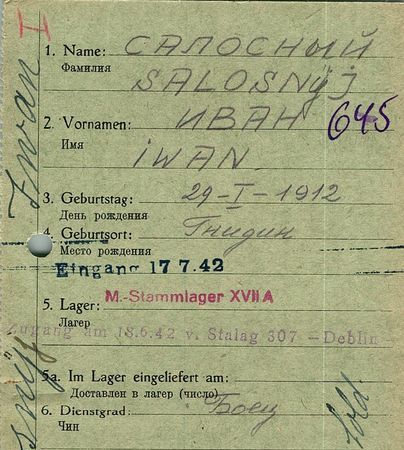 I
1. Name: САЛОСНЫЙ
Фамилия
SALOSNYJ
2. Vornamen: ИВАН 645
Имя
IWAN
3. Geburtstag: 29-I-1912
День рождения
4. Geburtsort: Гнидин
Место рождения
Eingang 17 7.42
5. Lager: M.-Stammlager XVII A
Лагер
Zugang am 18.6.42 v. Stalag 307 – Deblin
5a. Im Lager eingeliefert am:
Доставлен в лагер (число)
6. Dienstgrad: Боец
Чин
Iwan